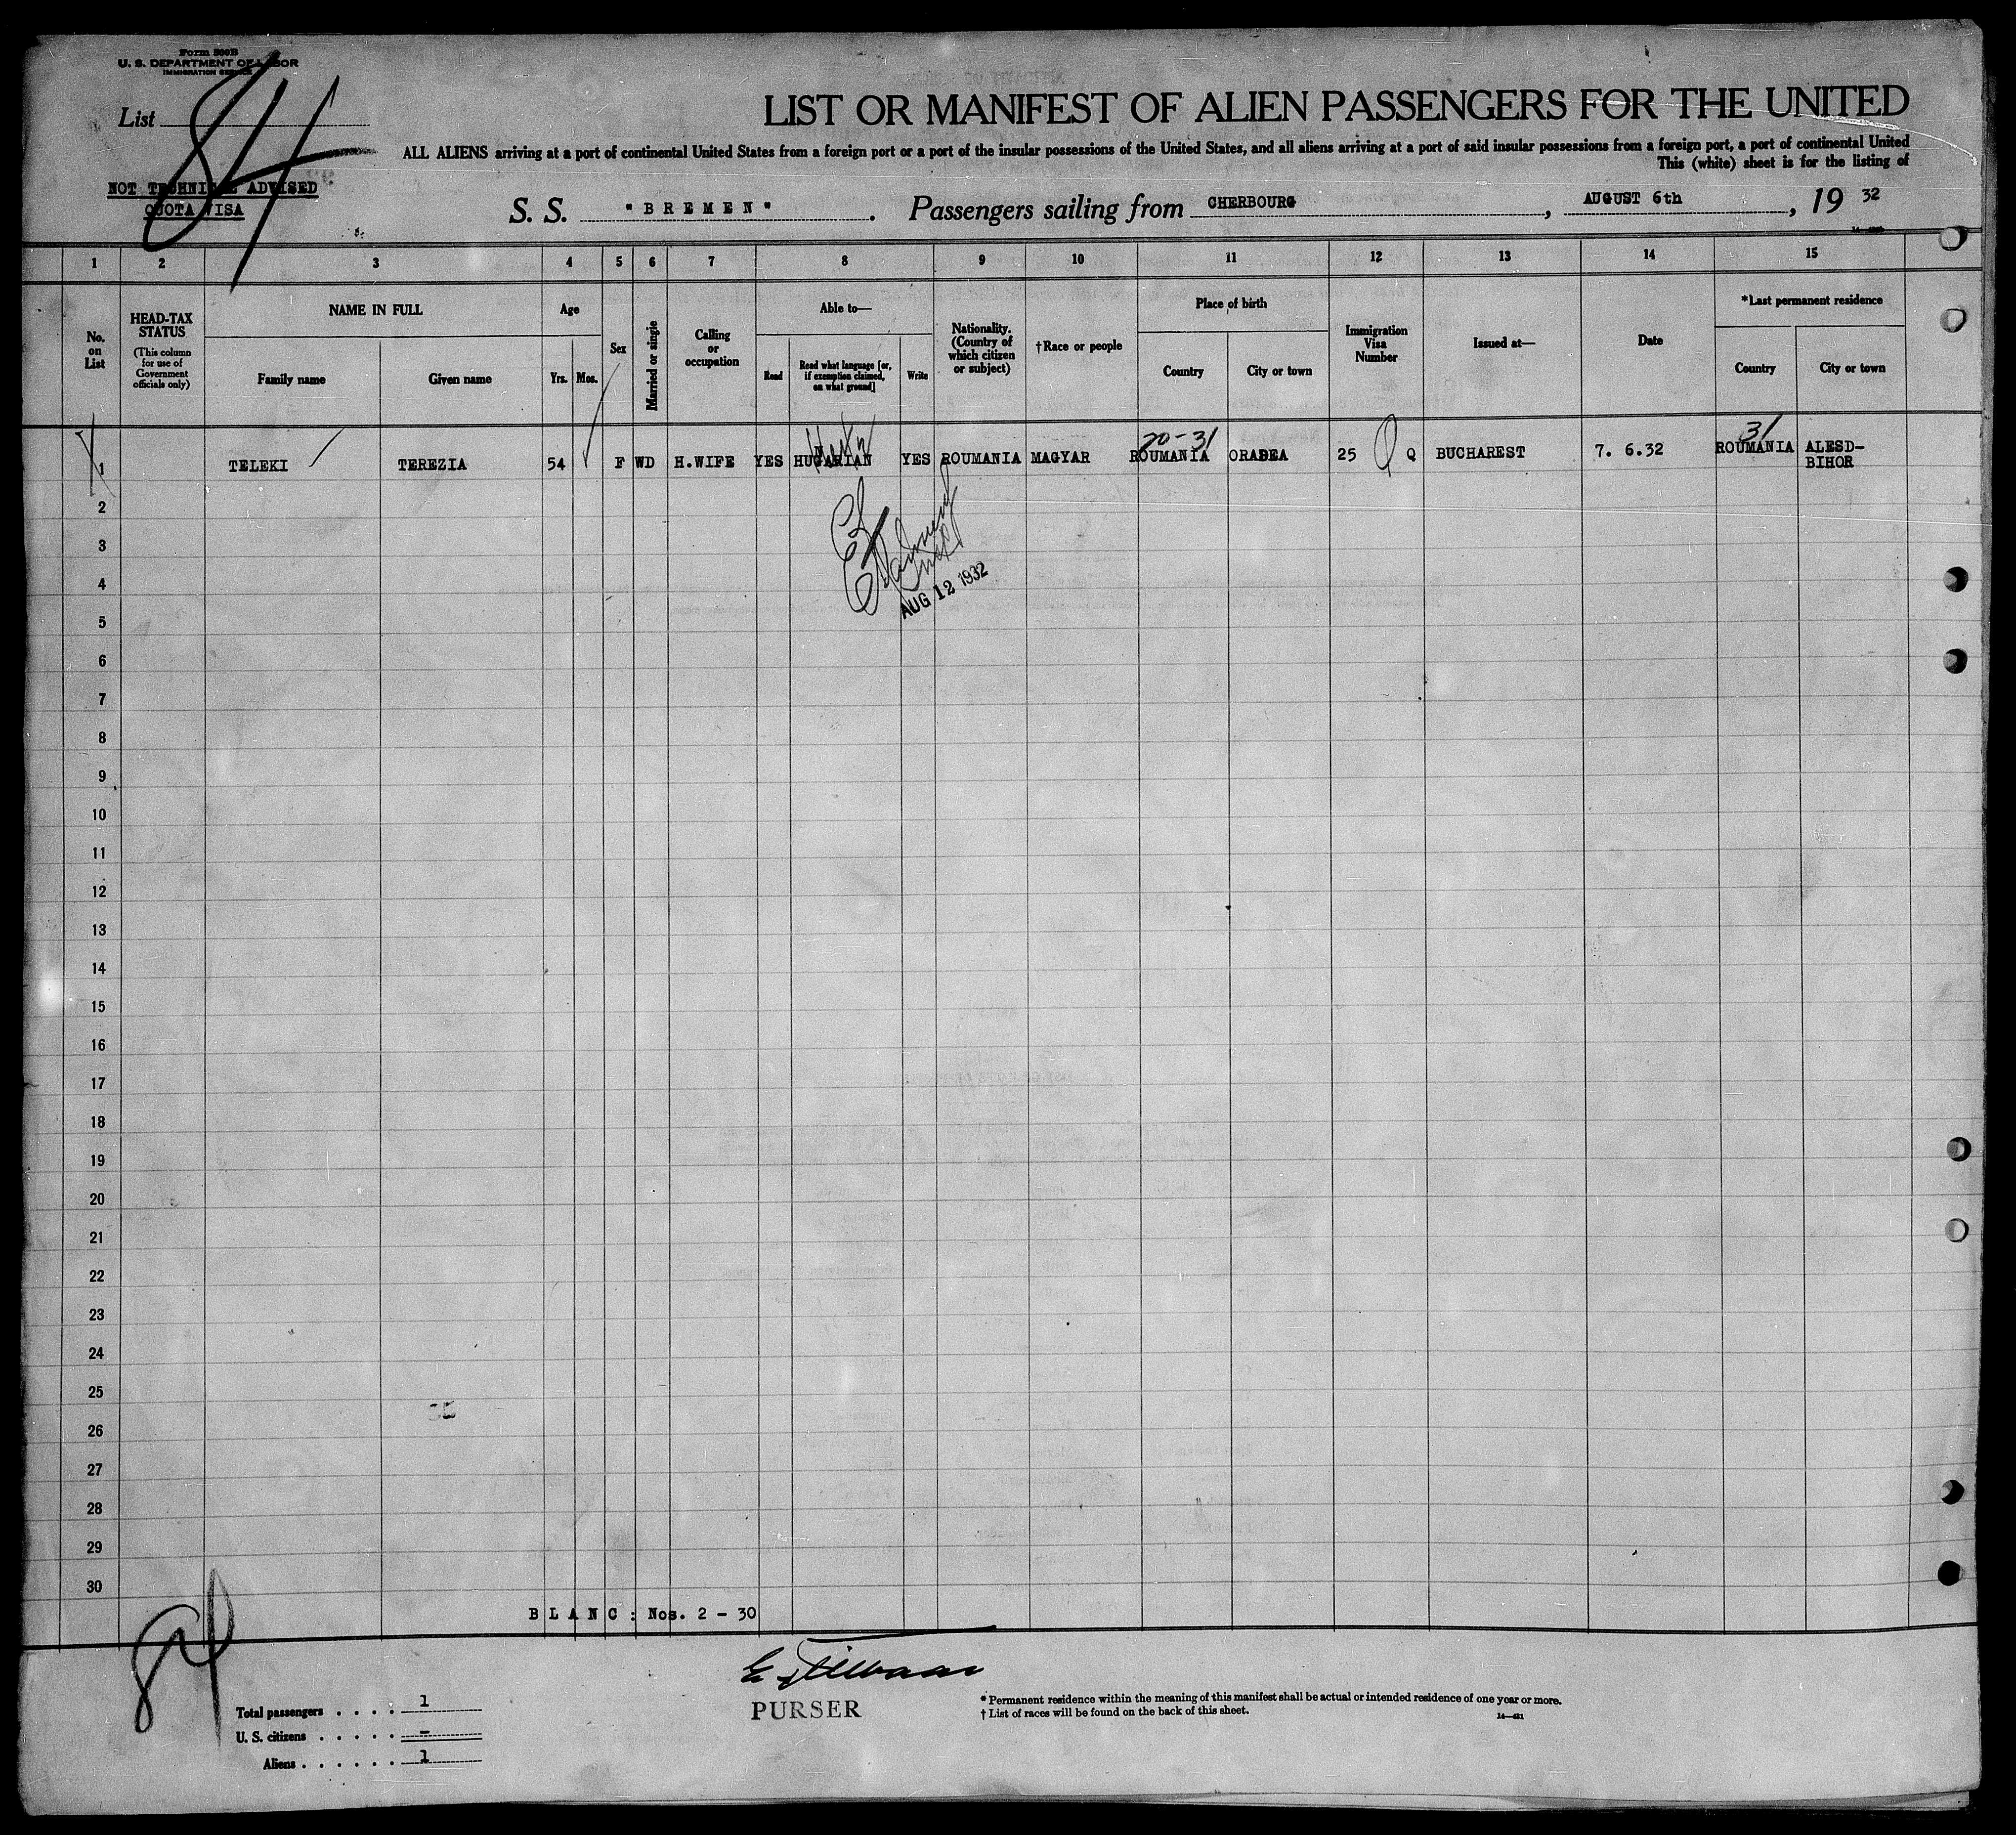 Form 500B
U. S. DEPARTMENT OF LABOR
IMMIGRATION SERVICE
List 84
LIST OR MANIFEST OF ALIEN PASSENGERS FOR THE UNITED
ALL ALIENS arriving at a port of continental United States from a foreign port or a port of the insular possessions of the United States, and all aliens arriving at a port of said insular possessions from a foreign port, a port of continental United
This (white) sheet is for the listing of
NOT TECHNICAL ADVISED
QUOTA VISA
S. S. "BREMEN". Passengers sailing from CHERBOURG, AUGUST 6th, 19 32
1 2 3 4 5 6 7 8 9 10 11 12 13 14 15
No. on List
HEAD-TAX STATUS
(This column for use of Government officials only)
NAME IN FULL
Family name Given name
Age
Yrs. Mos.
Sex
Married or single
Calling or occupation
Able to—
Read
Read what language [or, if exemption claimed, on what ground]
Write
Nationality. (Country of which citizen or subject)
†Race or people
Place of birth
Country City or town
Immigration Visa Number
Issued at—
Date
*Last permanent residence
Country City or town
20-31 31
1 TELEKI TEREZIA 54 F WD H.WIFE YES HUGARIAN YES ROUMANIA MAGYAR ROUMANIA ORADEA 25 Q BUCHAREST 7. 6.32 ROUMANIA ALESD-
BIHOR
2
3
4
AUG 12 1932
5
6
7
8
9
10
11
12
13
14
15
16
17
18
19
20
21
22
23
24
25
26
27
28
29
30
BLANC: Nos. 2 - 30
84
PURSER
Total passengers . . . . 1
U. S. citizens . . . . . –
Aliens . . . . . . 1
* Permanent residence within the meaning of this manifest shall be actual or intended residence of one year or more.
† List of races will be found on the back of this sheet.